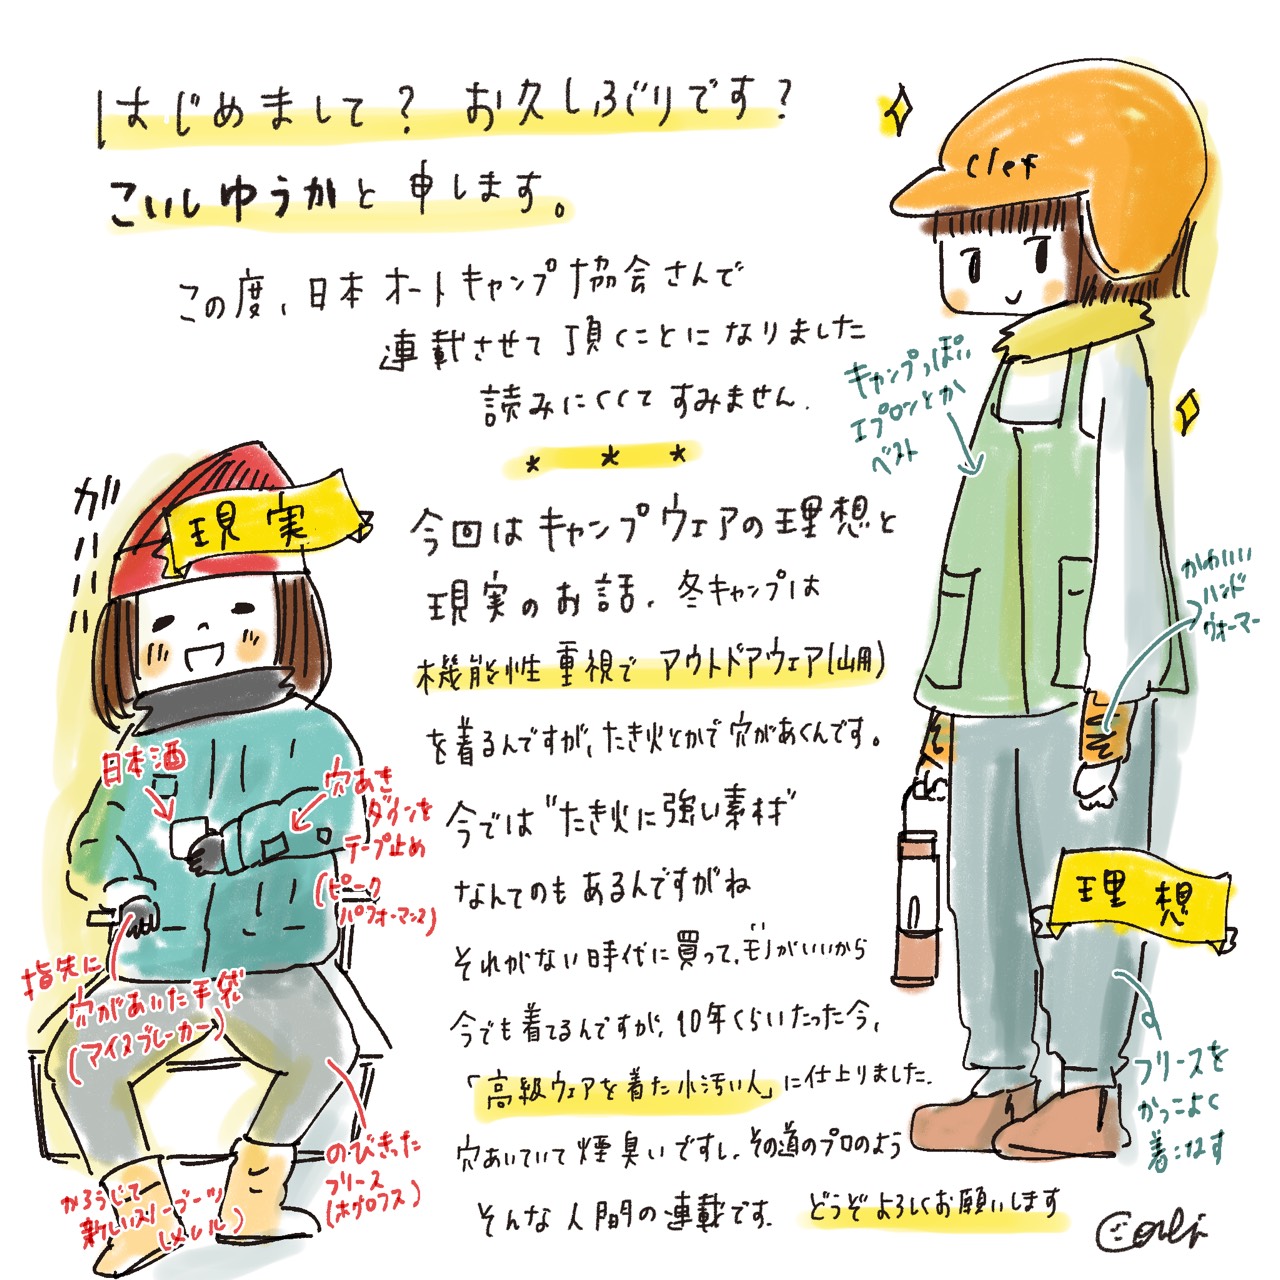 はじめまして? お久しぶりです?
こいしゆうかと申します。
この度、日本オートキャンプ協会さんで
連載させて頂くことになりました
読みにくくてすみません.
* * *
今回はキャンプウェアの理想と
現実のお話、冬キャンプは
機能性重視で アウトドアウェア(山用)
を着るんですが、たき火とかで穴があくんです。
今では"たき火に強い素材"
なんてのもあるんですがね
それがない時代に買って、モノがいいから
今でも着てるんですが、10年くらいたった今、
「高級ウェアを着た小汚い人」に仕上りました.
穴あいていて煙臭いですし、その道のプロのよう
そんな人間の連載です. どうぞよろしくお願いします
clef
キャンプっぽい
エプロンとか
ベスト
かわいい
ハンド
ウォーマー
理想
フリースを
かっこよく
着こなす
ガ
現実
日本酒
穴あき
ダウンを
テープ止め
(ピーク
パフォーマンス)
指先に
穴があいた手袋
(マイスブレーカー)
のびきった
フリース
(ホグロフス)
かろうじて
新しいスノーブーツ
(メレル)